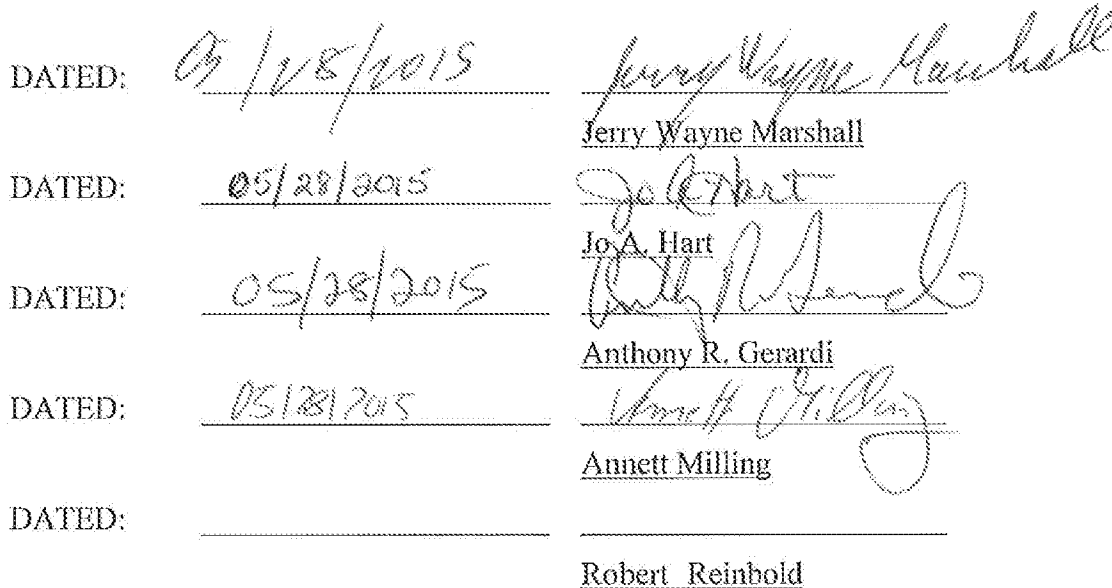 DATED: 05/28/2015 Jerry Wayne Marshall
Jerry Wayne Marshall
DATED: 05/28/2015 Jo A Hart
Jo A. Hart
DATED: 05/28/2015
Anthony R. Gerardi
DATED: 05/28/2015 Annett Milling
Annett Milling
DATED:
Robert Reinbold